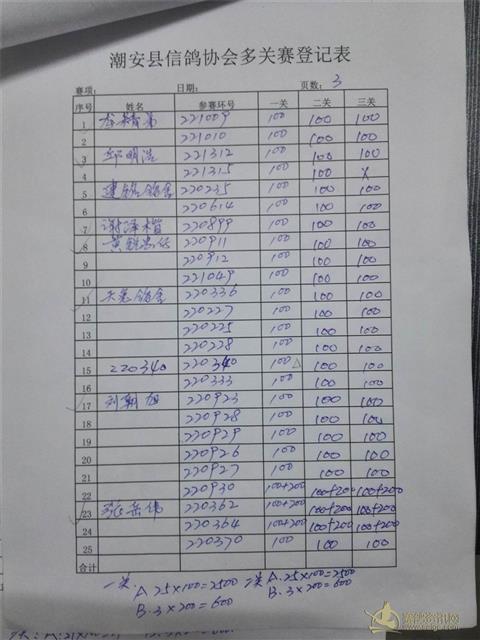 潮安县信鸽协会多关赛登记表
赛项: 日期: 页数: 3
序号 姓名 参赛环号 一关 二关 三关
1 221009 100 100 100
2 221010 100 100 100
3 邱明浩 221312 100 100 100
4 221315 100 100 X
5 建铭鸽舍 220235 100 100 100
6 220614 100 100 100
7 谢泽楷 220899 100 100 100
8 220911 100 100 100
9 220912 100 100 100
10 221049 100 100 100
11 鸽舍 220336 100 100 100
12 220227 100 100 100
13 220225 100 100 100
14 220228 100 100 100
15 220340 220340 100 100 100
16 220333 100 100 100
17 刘朝旭 220923 100 100 100
18 220928 100 100 100
19 220929 100 100 100
20 220926 100 100 100
21 220927 100 100 100
22 220930 100+200 100+200 100+200
23 张岳伟 220362 100+200 100+200 100+200
24 220364 100+200 100+200 100+200
25 220370 100 100 100
合计
一关: A.25×100=2500 二关 A.25×100=2500
B.3×200=600 B.3×200=600